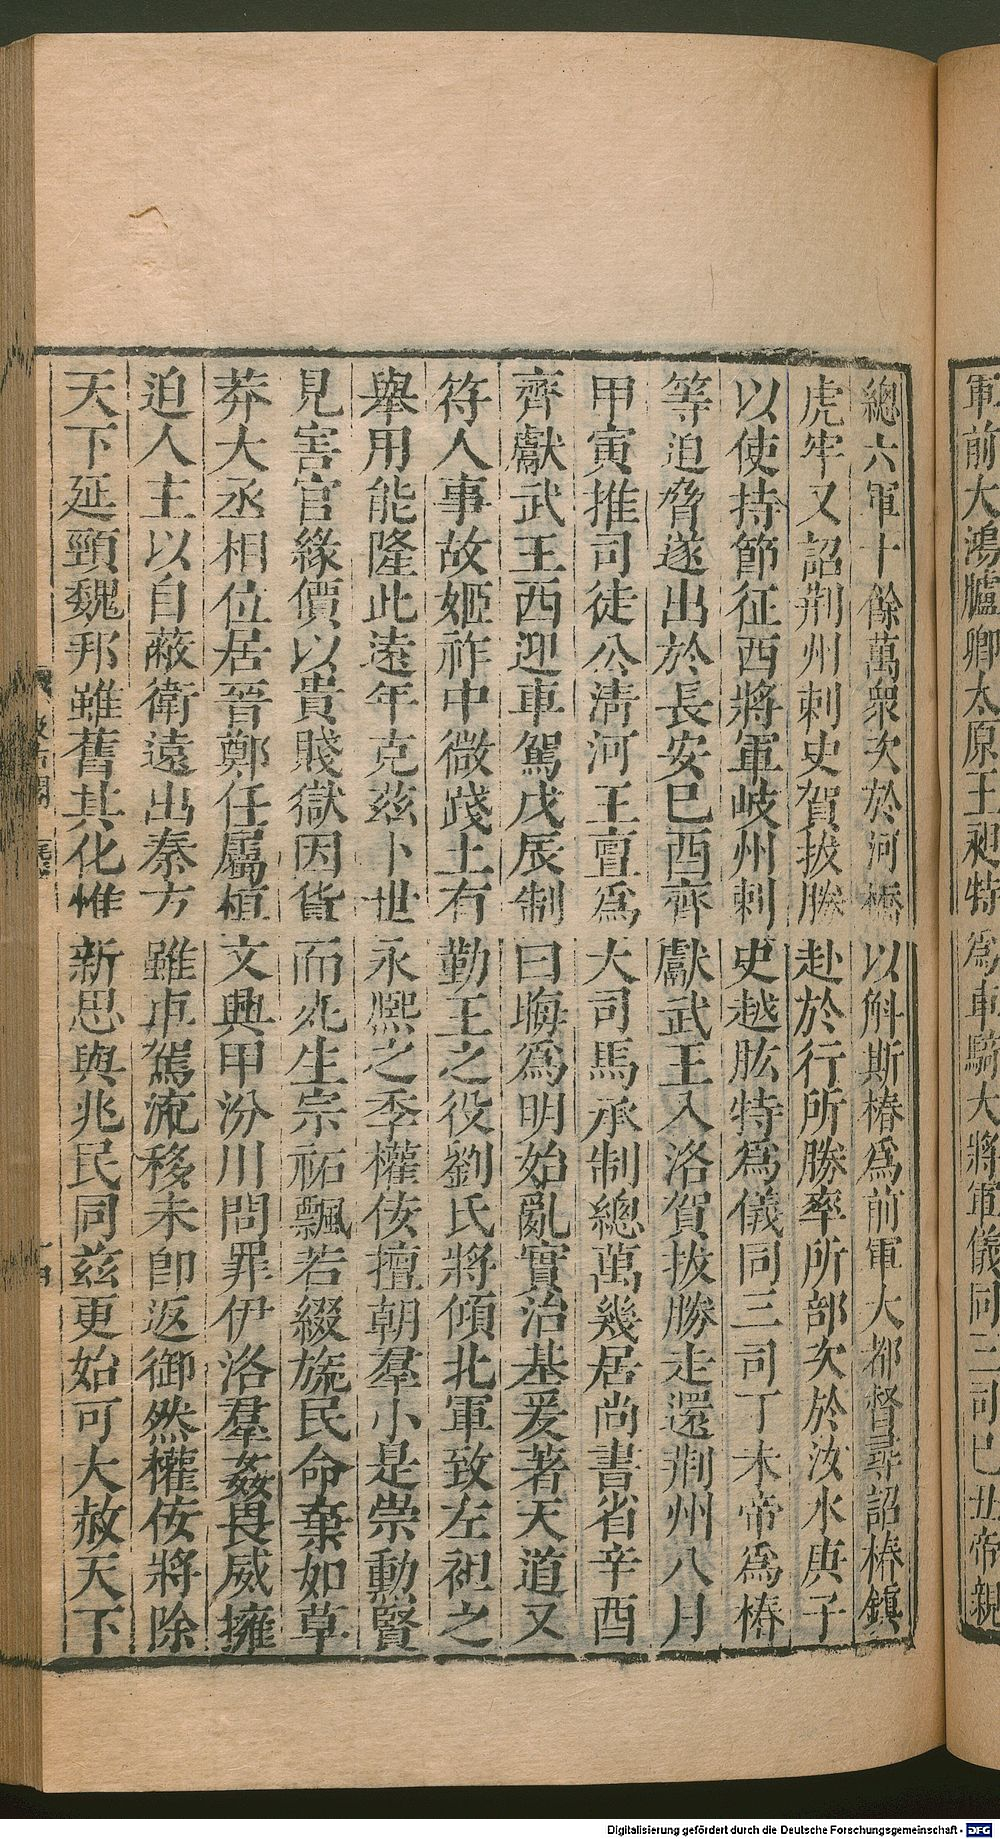 軍前大鴻臚卿太原王昶特爲車騎大將軍儀同三司己丑帝親
總六軍十餘萬衆次於河橋以斛斯椿爲前軍大都督尋詔椿鎮
虎牢又詔荆州刺史賀拔勝赴於行所勝率所部次於汝水庚子
以使持節征西將軍岐州刺史越肱特爲儀同三司丁未帝爲椿
等迫脅遂出於長安己酉齊獻武王入洛賀拔勝走還荆州八月
甲寅推司徒公清河王亶爲大司馬承制總萬幾居尚書省辛酉
齊獻武王西迎車駕戊辰制曰晦爲明始亂實治基爰著天道又
符人事故姬祚中微踐土有勤王之役劉氏將傾北軍致左袒之
舉用能隆此遠年克茲卜世永熙之季權佞擅朝羣小是崇勳賢
見害官緣價以貴賤獄因貨而死生宗祏飄若綴旒民命棄如草
莽大丞相位居晉鄭任屬桓文興甲汾川問罪伊洛羣姦畏威擁
迫人主以自蔽衛遠出秦方雖車駕流移未卽返御然權佞將除
天下延頸魏邦雖舊其化惟新思與兆民同茲更始可大赦天下
Digitalisierung gefördert durch die Deutsche Forschungsgemeinschaft - DFG